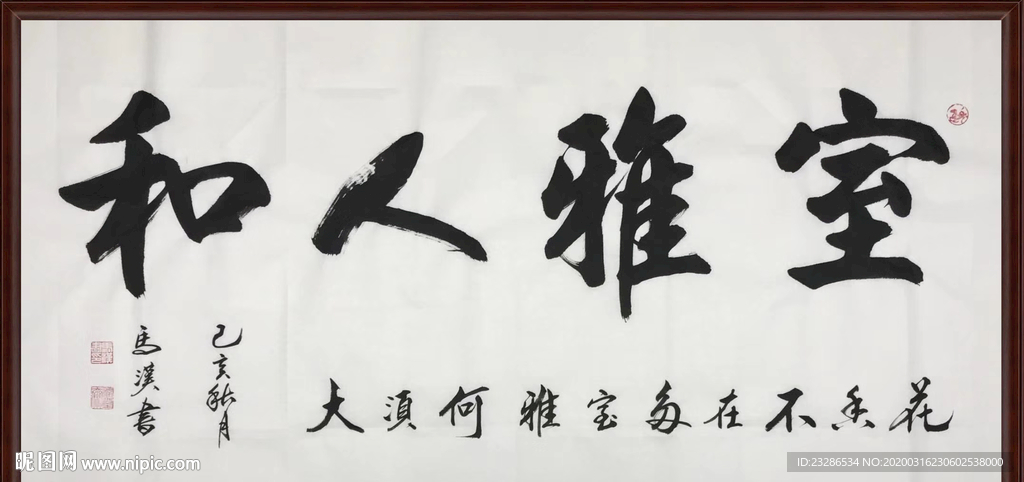 室雅人和
花香不在多室雅何须大
己亥秋月
马汉书
昵图网 www.nipic.com
ID:23286534 NO:20200316230602538000